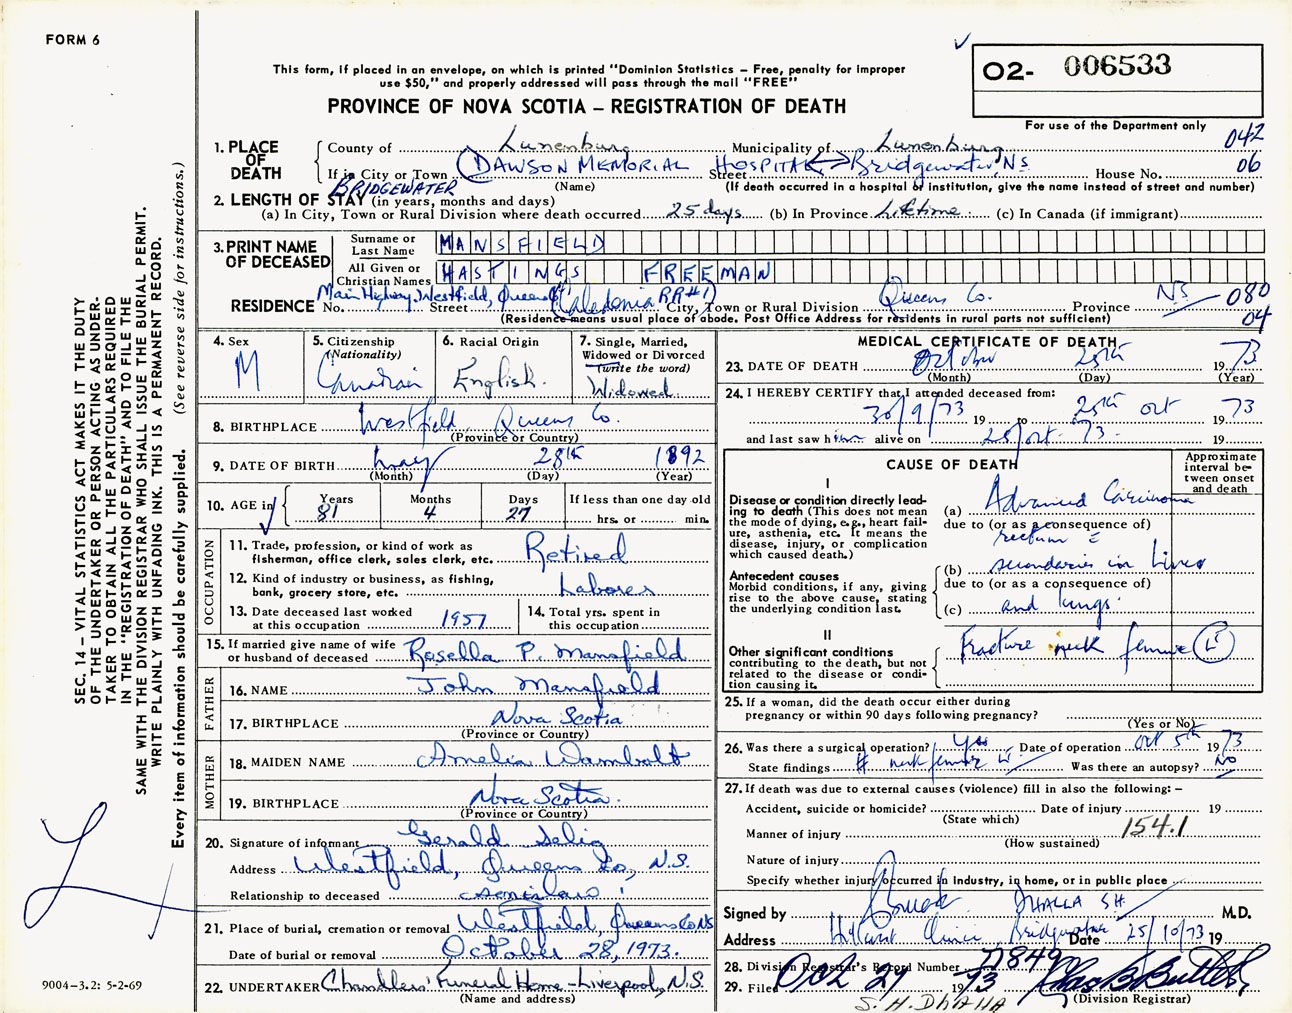 FORM 6
This form, if placed in an envelope, on which is printed "Dominion Statistics – Free, penalty for improper
use $50," and properly addressed will pass through the mail "FREE"
O2- 006533
PROVINCE OF NOVA SCOTIA – REGISTRATION OF DEATH
For use of the Department only
042
1. PLACE OF DEATH
County of Lunenburg Municipality of Lunenburg
If in City or Town DAWSON MEMORIAL HOSPITAL Street Bridgewater NS House No. 06
BRIDGEWATER (Name) (If death occurred in a hospital or institution, give the name instead of street and number)
2. LENGTH OF STAY (in years, months and days)
(a) In City, Town or Rural Division where death occurred 25 days (b) In Province Lifetime (c) In Canada (if immigrant)
3. PRINT NAME OF DECEASED
Surname or Last Name MANSFIELD
All Given or Christian Names HASTINGS FREEMAN
Main Highway, Westfield, Queens Co (Caledonia RR#1)
RESIDENCE No. Street City, Town or Rural Division Queens Co. Province NS 080
(Residence means usual place of abode. Post Office Address for residents in rural parts not sufficient) 04
4. Sex M
5. Citizenship (Nationality) Canadian
6. Racial Origin English.
7. Single, Married, Widowed or Divorced (write the word) Widowed.
8. BIRTHPLACE Westfield, Queens Co.
(Province or Country)
9. DATE OF BIRTH May 28th 1892
(Month) (Day) (Year)
10. AGE in Years 81 Months 4 Days 27 If less than one day old
hrs. or min.
OCCUPATION
11. Trade, profession, or kind of work as
fisherman, office clerk, sales clerk, etc. Retired
12. Kind of industry or business, as fishing,
bank, grocery store, etc. Laborer
13. Date deceased last worked
at this occupation 1957
14. Total yrs. spent in
this occupation
15. If married give name of wife
or husband of deceased Rosella P. Mansfield
FATHER
16. NAME John Mansfield
17. BIRTHPLACE Nova Scotia
(Province or Country)
MOTHER
18. MAIDEN NAME Amelia Wambolt
19. BIRTHPLACE Nova Scotia.
(Province or Country)
20. Signature of informant Gerald Selig
Address Westfield, Queens Co, N.S.
Relationship to deceased
21. Place of burial, cremation or removal Westfield, Queens Co NS
Date of burial or removal October 28, 1973.
22. UNDERTAKER Chandlers' Funeral Home - Liverpool, N.S.
(Name and address)
MEDICAL CERTIFICATE OF DEATH
23. DATE OF DEATH October 25th 1973
(Month) (Day) (Year)
24. I HEREBY CERTIFY that I attended deceased from:
30/9/73 19 to 25th Oct 1973
and last saw him alive on 25/Oct. 73. 19
CAUSE OF DEATH
Approximate interval between onset and death
I
Disease or condition directly lead-
ing to death (This does not mean
the mode of dying, e.g., heart fail-
ure, asthenia, etc. It means the
disease, injury, or complication
which caused death.)
(a) Advanced Carcinoma
due to (or as a consequence of)
rectum c̄
Antecedent causes
Morbid conditions, if any, giving
rise to the above cause, stating
the underlying condition last.
(b) secondaries in Liver
due to (or as a consequence of)
(c) and lungs.
II
Other significant conditions
contributing to the death, but not
related to the disease or condi-
tion causing it.
Fracture neck femur (LT)
25. If a woman, did the death occur either during
pregnancy or within 90 days following pregnancy?
(Yes or No)
26. Was there a surgical operation? Yes Date of operation Oct 5th 1973
State findings # neck femur LT Was there an autopsy? NO
27. If death was due to external causes (violence) fill in also the following: –
Accident, suicide or homicide? Date of injury 19
(State which)
Manner of injury 154.1
(How sustained)
Nature of injury
Specify whether injury occurred in industry, in home, or in public place
Signed by DHALLA SH M.D.
Address Hillcrest Clinic, Bridgewater Date 25/10/73 19
28. Division Registrar's Record Number D849
29. Filed Oct 27 1973 Chas B Butler
S. H. DHALLA (Division Registrar)
SEC. 14 – VITAL STATISTICS ACT MAKES IT THE DUTY
OF THE UNDERTAKER OR PERSON ACTING AS UNDER-
TAKER TO OBTAIN ALL THE PARTICULARS REQUIRED
IN THE "REGISTRATION OF DEATH" AND TO FILE THE
SAME WITH THE DIVISION REGISTRAR WHO SHALL ISSUE THE BURIAL PERMIT.
WRITE PLAINLY WITH UNFADING INK. THIS IS A PERMANENT RECORD.
Every item of information should be carefully supplied. (See reverse side for instructions.)
9004-3.2: 5-2-69